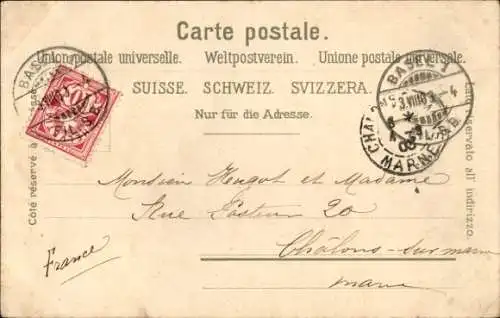 Carte postale.
Union postale universelle. Weltpostverein. Unione postale universale.
SUISSE. SCHWEIZ. SVIZZERA.
Nur für die Adresse.
Côté réservé à
lato riservato all' indirizzo.
10
BASEL 1
3.VIII.03.–4
MARNE
Monsieur Hengot et Madame
Rue Pasteur 20
Châlons-sur-marne
marne
France